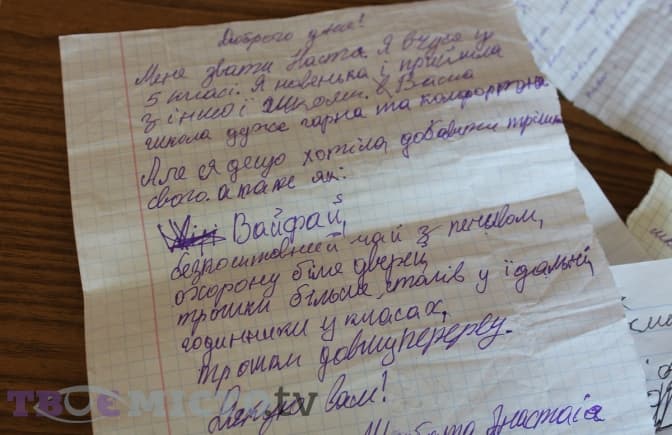 Доброго дня!
Мене звати Настя. Я вчуся у
5 класі. Я новенька і прийшла
з іншої школи. Ваша
школа дуже гарна та комфортна
Але я дещо хотіла добавити трішки
свого. а таке як:
Вайфай,
безпоштовний чай з печивом,
охорону біля дверец
трошки більше сталів у їдальні
годинники у класах,
трошки довшу перерву.
Дякую вам!
ТВОЄ МІСТО.tv